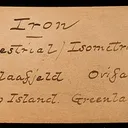 Iron
estrial / Isometr
laafjeld Ovifa
o Island Greenla